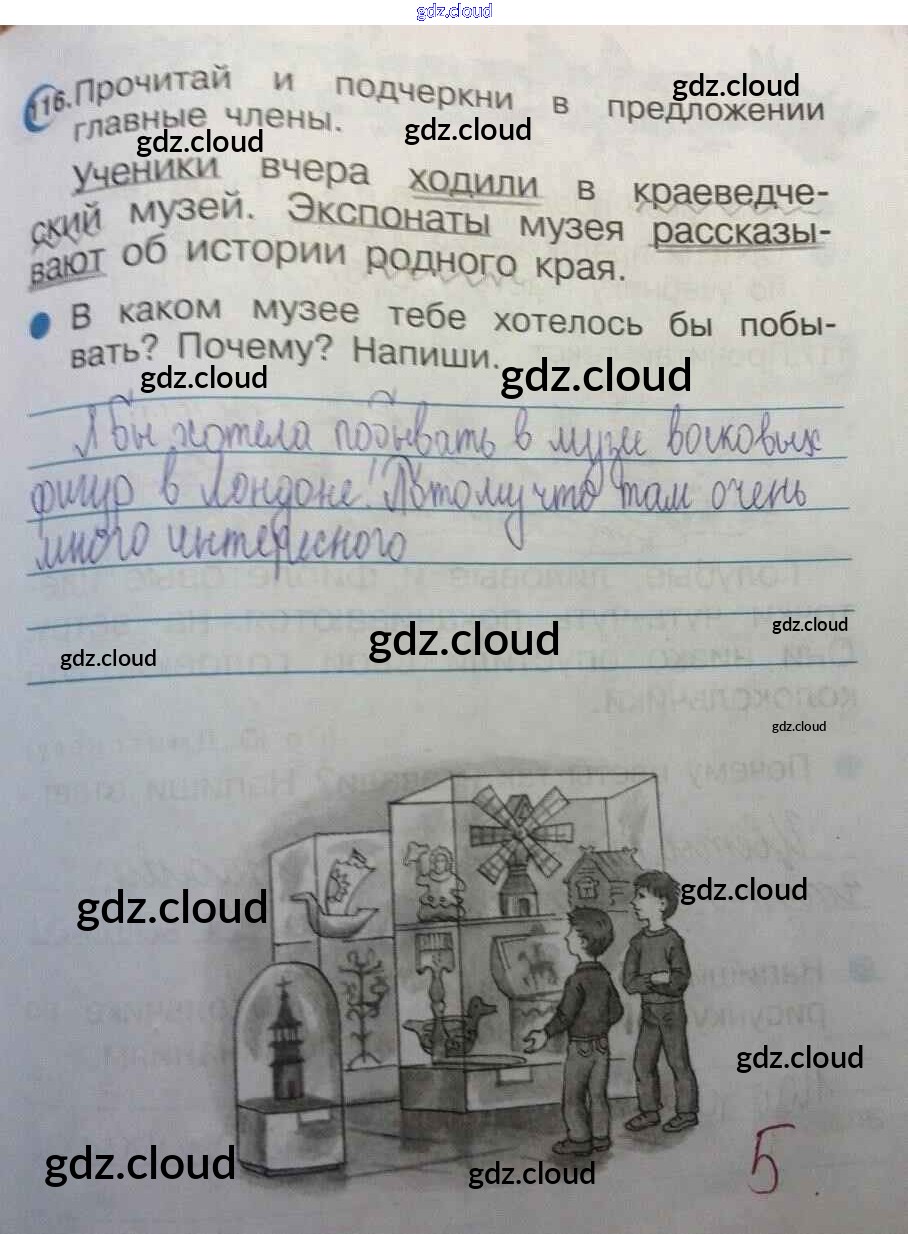 gdz.cloud
116. Прочитай и подчеркни в предложении
gdz.cloud
главные члены.
gdz.cloud
gdz.cloud
Ученики вчера ходили в краеведче-
ский музей. Экспонаты музея рассказы-
вают об истории родного края.
В каком музее тебе хотелось бы побы-
вать? Почему? Напиши.
gdz.cloud
gdz.cloud
Я бы хотела побывать в музи восковых
фигур в Лондоне! Потому что там очень
много интересного
gdz.cloud
gdz.cloud
gdz.cloud
gdz.cloud
gdz.cloud
gdz.cloud
gdz.cloud
gdz.cloud
gdz.cloud
5